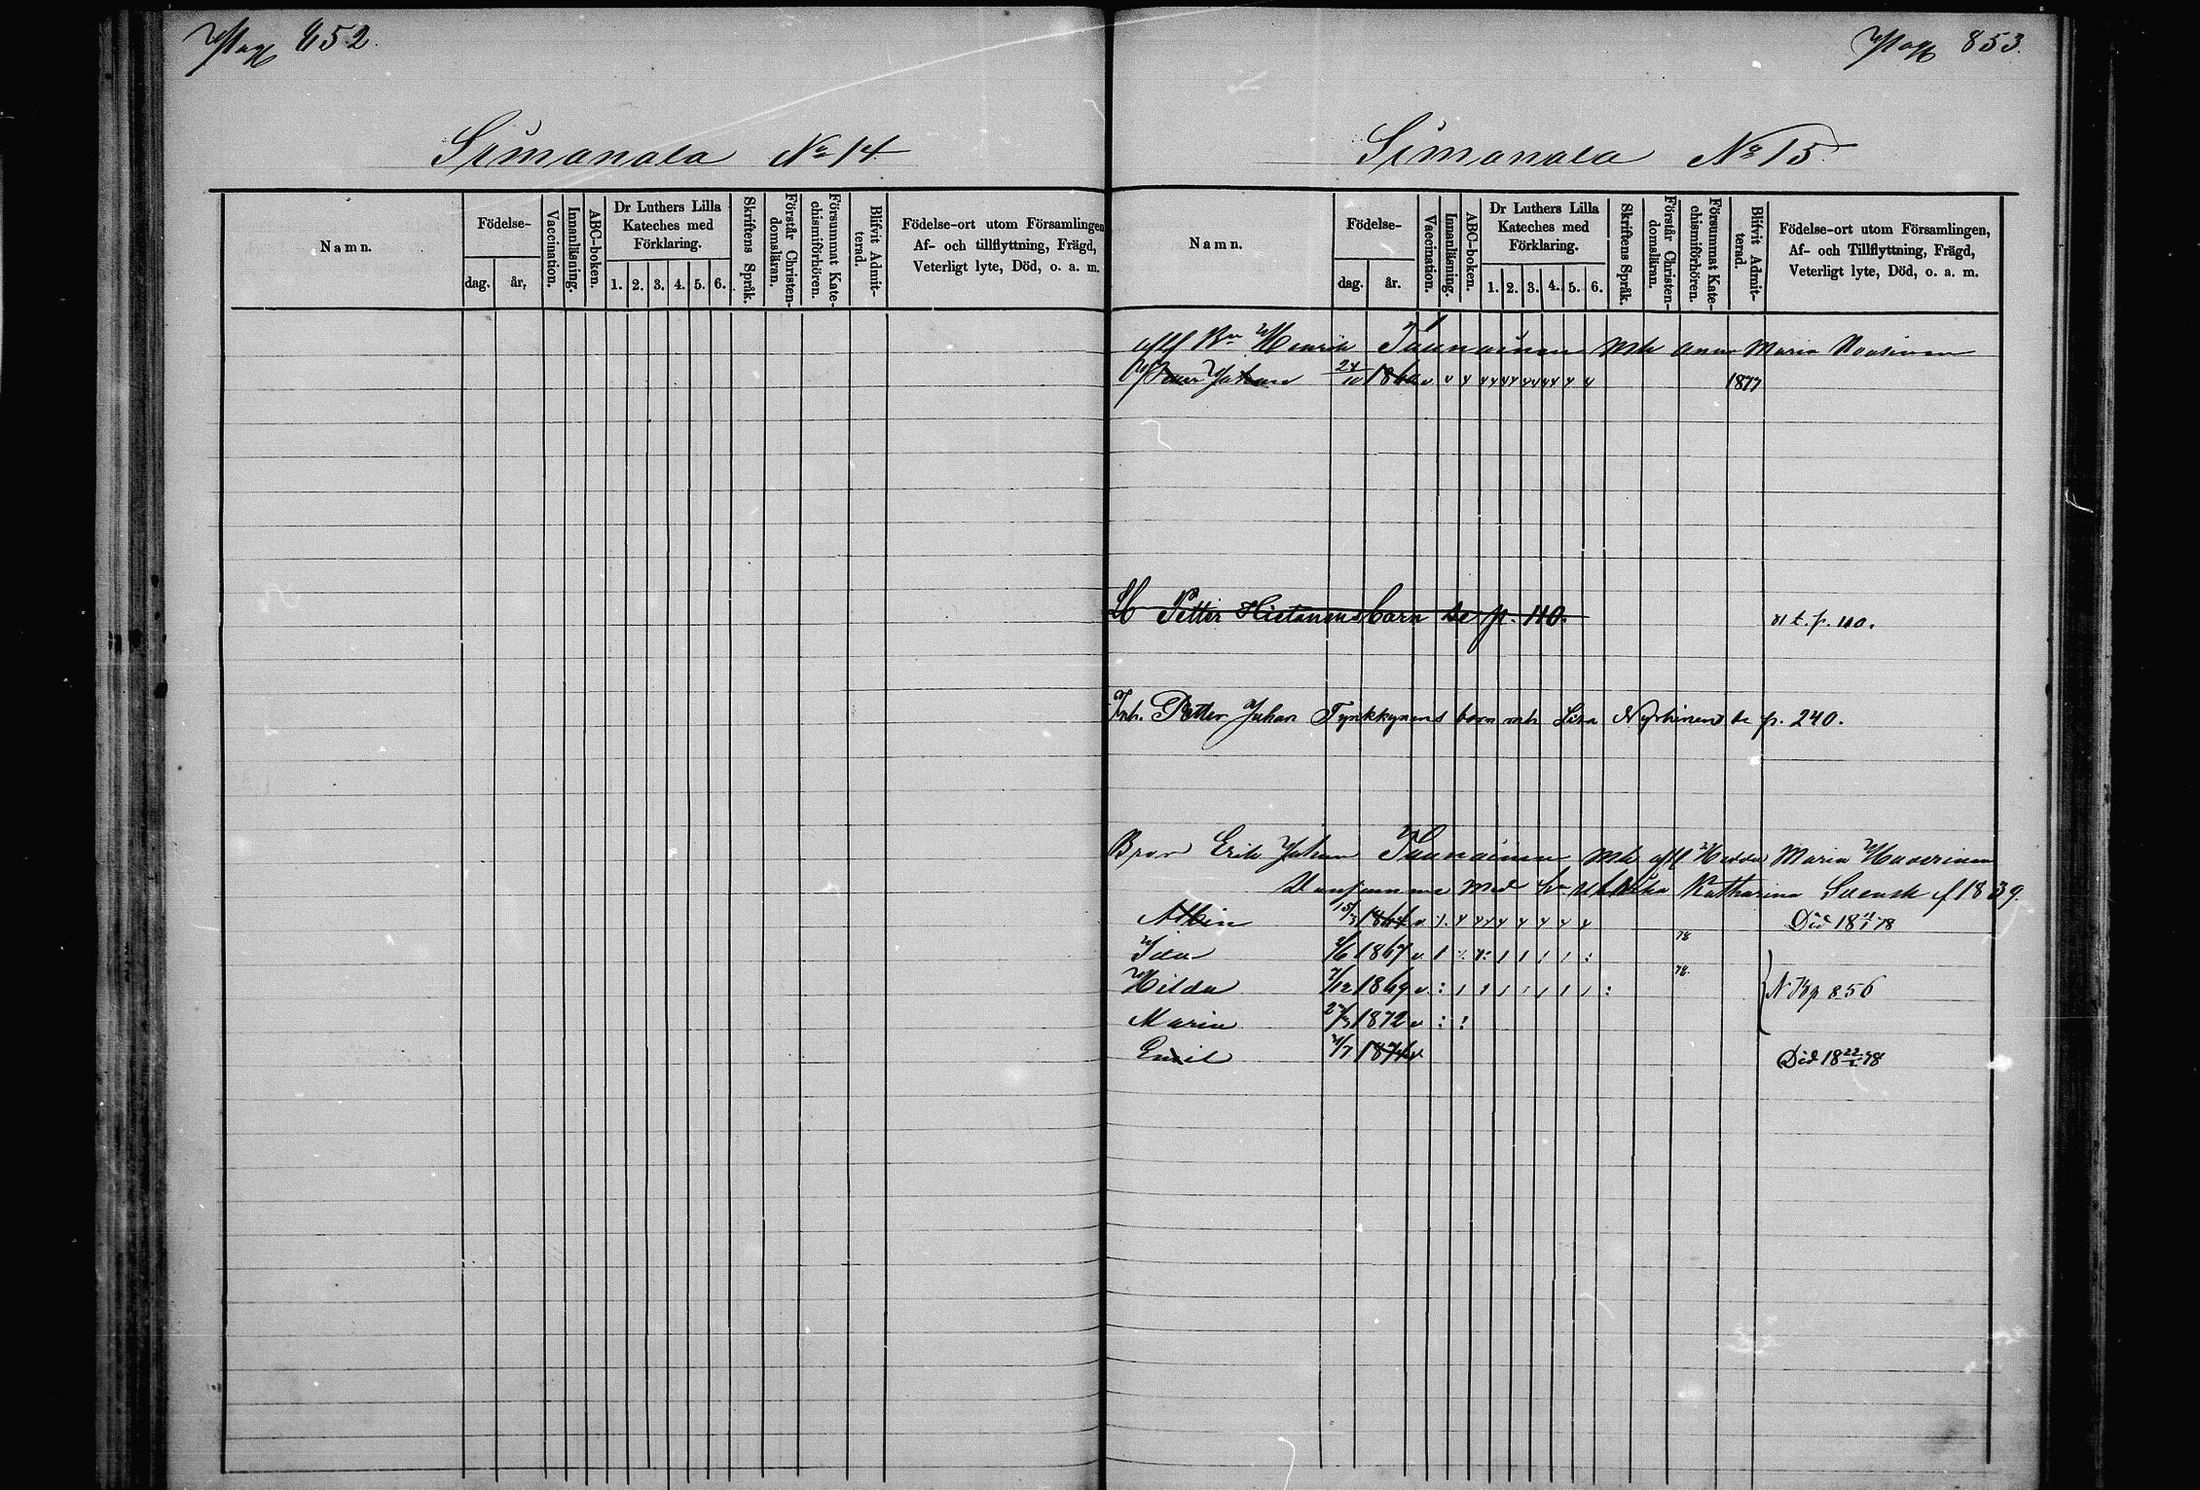 Pag 852.
Simanala No 14
Namn.
Födelse-
dag.
år.
Vaccination.
Innanläsning.
ABC-boken.
Dr Luthers Lilla
Kateches med
Förklaring.
1. 2. 3. 4. 5. 6.
Skriftens Språk.
Förstår Christen-
domsläran.
Försummat Kate-
chismiförhören.
Blifvit Admit-
terad.
Födelse-ort utom Församlingen
Af- och tillflyttning, Frägd,
Veterligt lyte, Död, o. a. m.
Pag 853.
Simanala No 15
Namn.
Födelse-
dag.
år.
Vaccination.
Innanläsning.
ABC-boken.
Dr Luthers Lilla
Kateches med
Förklaring.
1. 2. 3. 4. 5. 6.
Skriftens Språk.
Förstår Christen-
domsläran.
Försummat Kate-
chismiförhören.
Blifvit Admit-
terad.
Födelse-ort utom Församlingen,
Af- och Tillflyttning, Frägd,
Veterligt lyte, Död, o. a. m.
afl Br Henrik Taunainen mh Anna Maria
Johan 24/10 1860 1877
Petter Hietanens barn se p. 110. st. p. 110.
Inh. Petter Johan Tynkkynens barn mh Lisa Nyrhinen se p. 240.
Bror Erik Johan Taunainen mh afl Hedda Maria Haverinen
med Ulrika Katharina Svensk f 1839.
Albin 15/3 1864 Död 18 11/1 78
Ida 1867 78
Hilda /12 1869 78. N Bp 856
Maria 27/3 1872
Emil /7 1874 Död 18 22/2 78